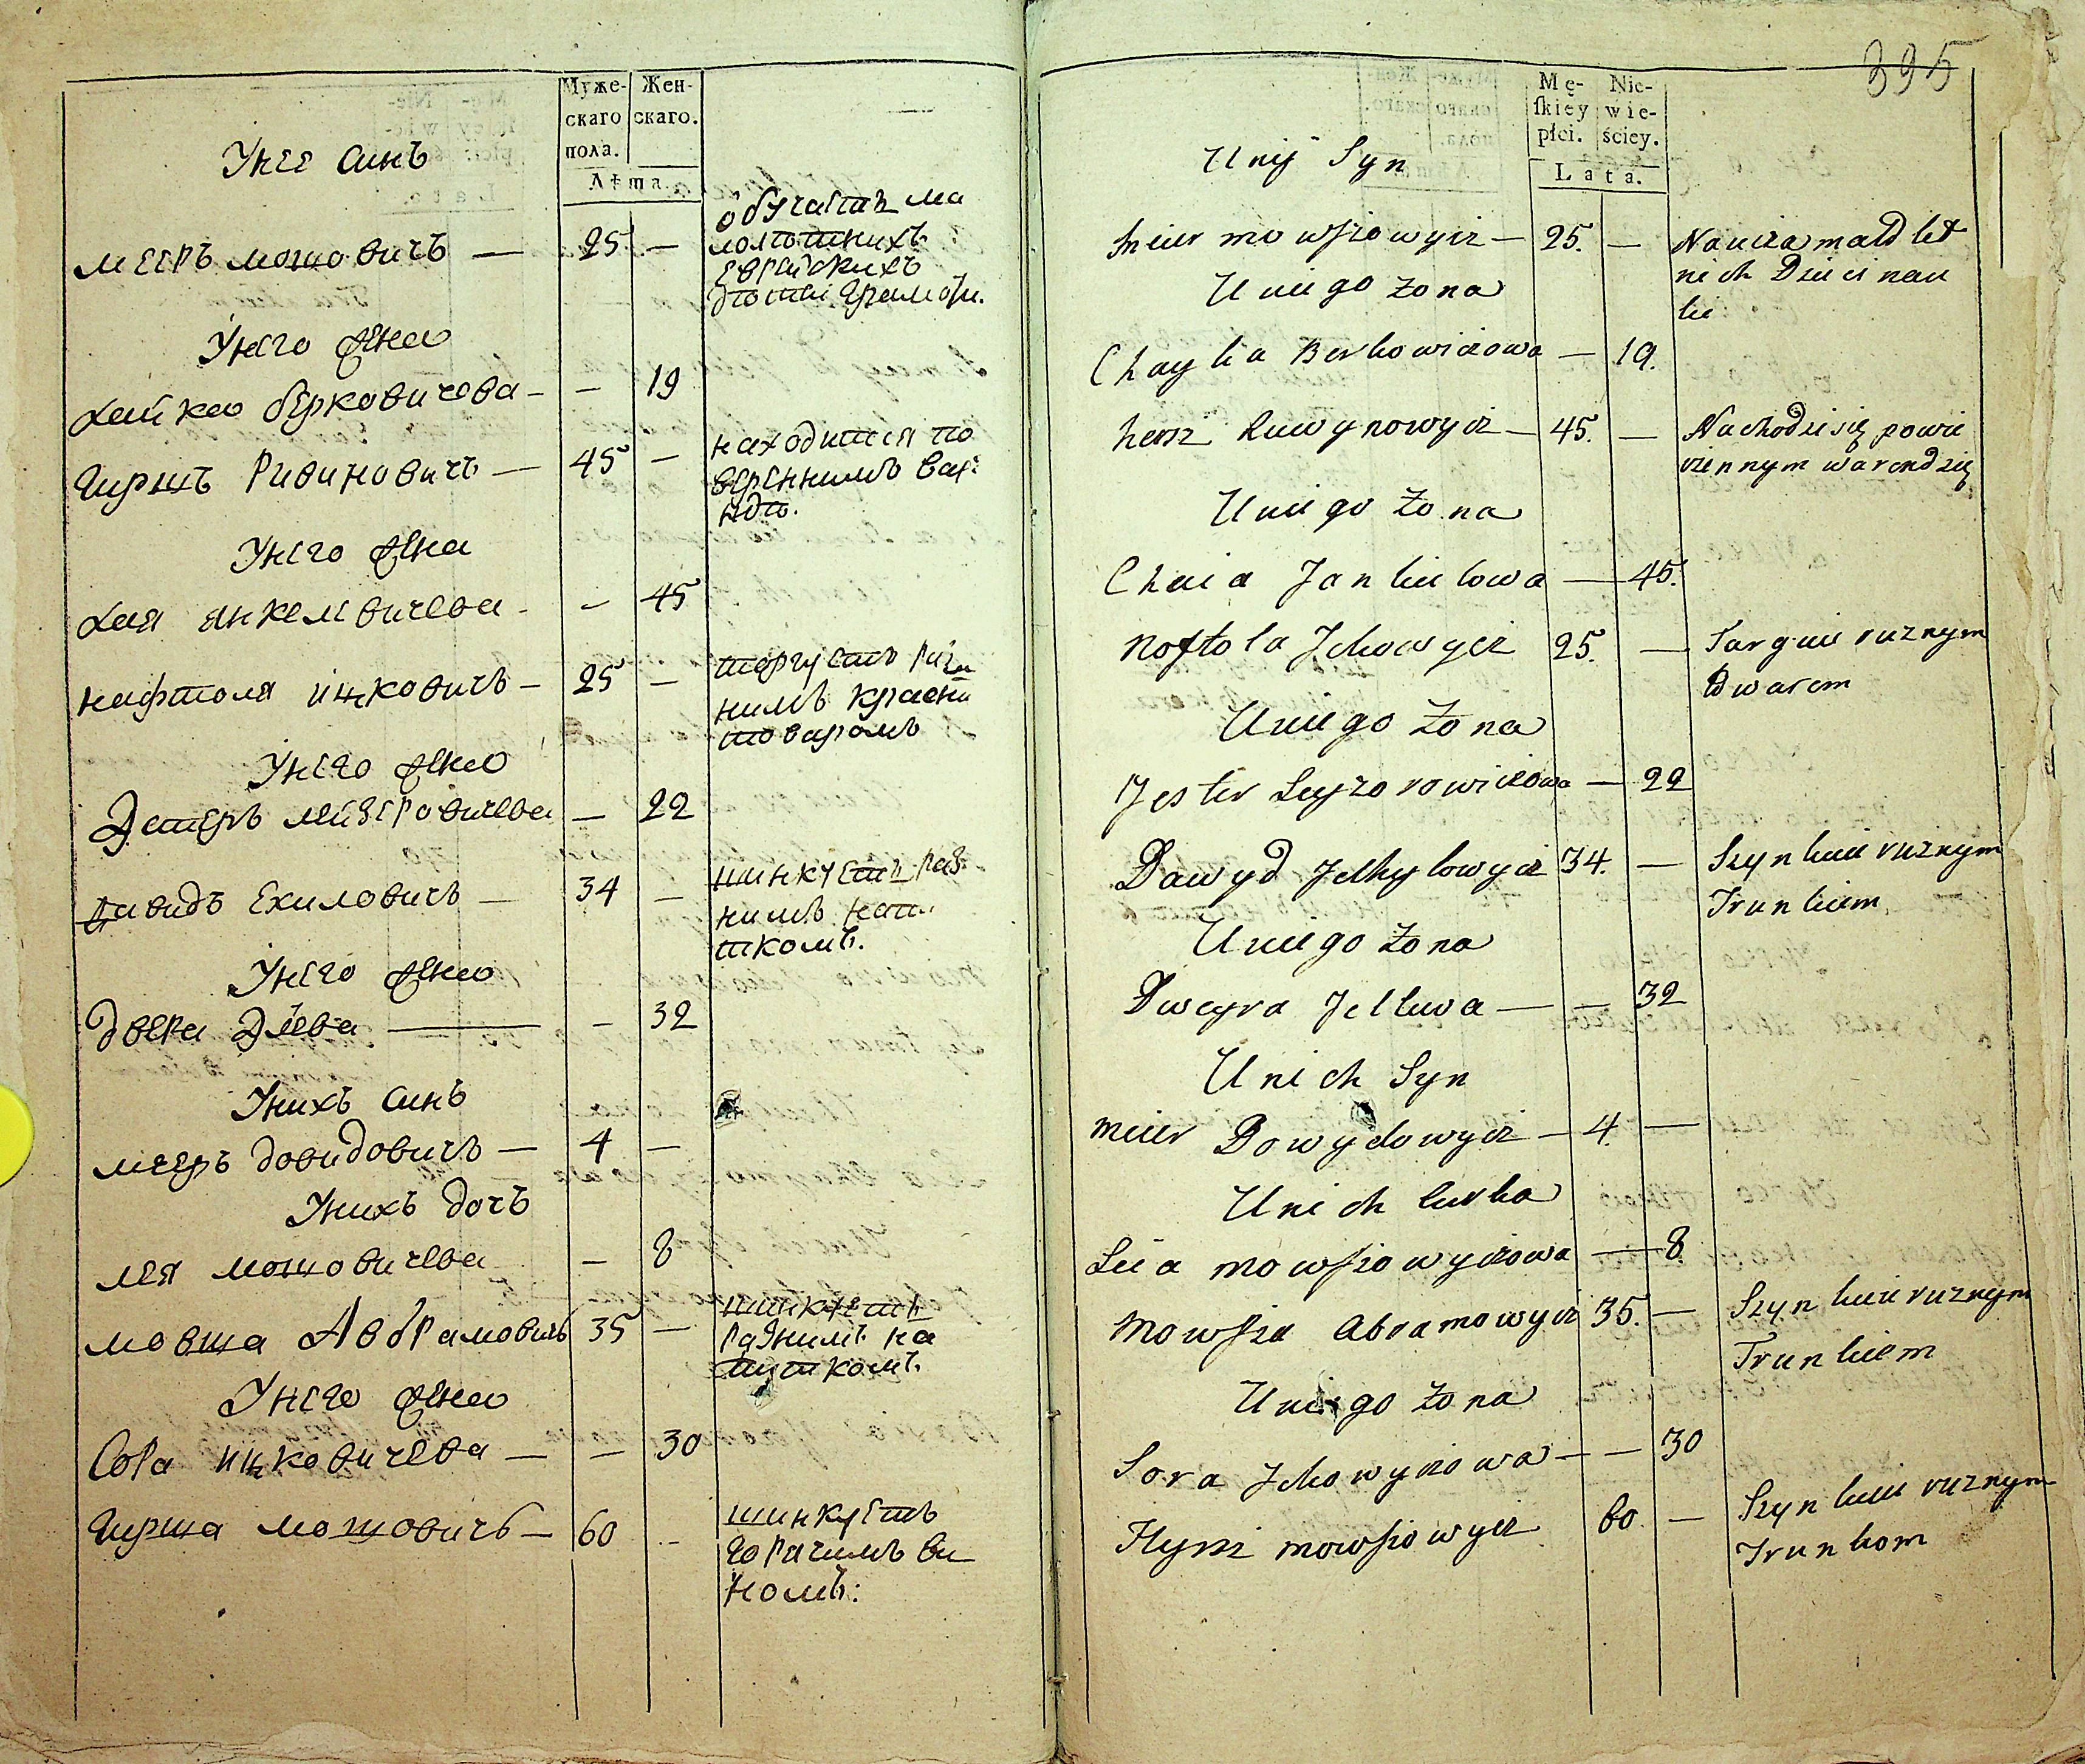 Муже-
скаго
пола.
Жен-
скаго.
Лѣта.
Унее синъ
меeръ мошовичъ — 25 —
обучаетъ ма
лолѣтнихъ
еврейскихъ
дѣтей грамоти.
Унего жена
хайка берковичова — — 19
Гиршъ Ривиновичъ — 45 —
находится по
вереннимъ вар:
ндѣ.
Унего жена
хая янкелевичева — — 45
нафтоля ицковичъ — 25 —
торгуетъ
нимъ красни
товаромъ
Унего жена
Эстеръ лейзеровичева — 22
давидъ Ехиловичъ — 34 —
шинкуетъ раз:
нимъ напи
ткомъ.
Унего жена
двера Элева — — 32
Унихъ синъ
мееръ довидовичъ — 4 —
Унихъ дочъ
лея мошовичева — 8
мовша Аврамовичъ 35 —
шинкуетъ
разнимъ на
питкомъ.
Унего жена
Сора ицковичева — — 30
Гирша мошовичъ — 60 —
шинкуетъ
горачимъ ви
номъ:
395
Mę-
skiey
płci.
Nie-
wie-
ściey.
Lata.
Uniy Syn
Meier mowszowycz — 25. —
Naucza mało let
nich Dzieci nau
ki
Uniego żona
Chayka Berkowiczowa — 19.
hersz Ruwynowycz — 45. —
Nachodzi się powie
rzennym warendzie
Uniego żona
Chaia Jankielowa — 45.
Noftola Jckowycz 25. —
Targuie rużnym
towarem
Uniego żona
Jester Leyzorowiczowa — 22
Dawyd Jelhylowycz 34. —
Szynkuie rużnym
Trunkiem
Uniego żona
Dweyra Jellowa — — 32
Unich Syn
meier Dowydowycz — 4. —
Unich Curka
Leia mowszowyczowa — 8
Mowsza Abramowycz 35. —
Szynkuie rużnym
Trunkiem
Uniego żona
Sora Jckowyczowa — — 30
Hyrsz mowszowycz 60 —
Szynkuie rużnym
Trunkom